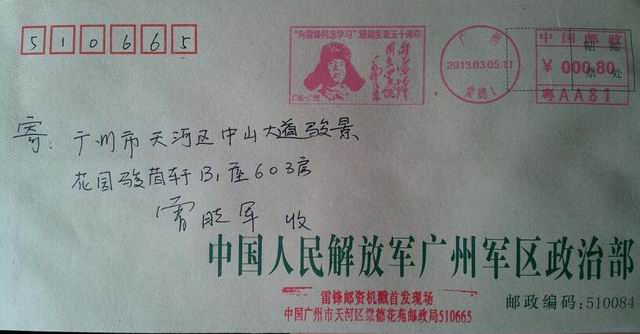 510665
"向雷锋同志学习"题词发表五十周年
向雷锋同志学习
毛泽东
广东·广州
广州
2013.03.05.11
棠德1
中国邮政
¥ 000.80
粤AA81
贴 邮
票 处
寄: 广州市天河区中山大道骏景
花园骏茵轩B1座603房
雷晓军 收
中国人民解放军广州军区政治部
雷锋邮资机戳首发现场
中国广州市天河区棠德花苑邮政局510665
邮政编码:510084